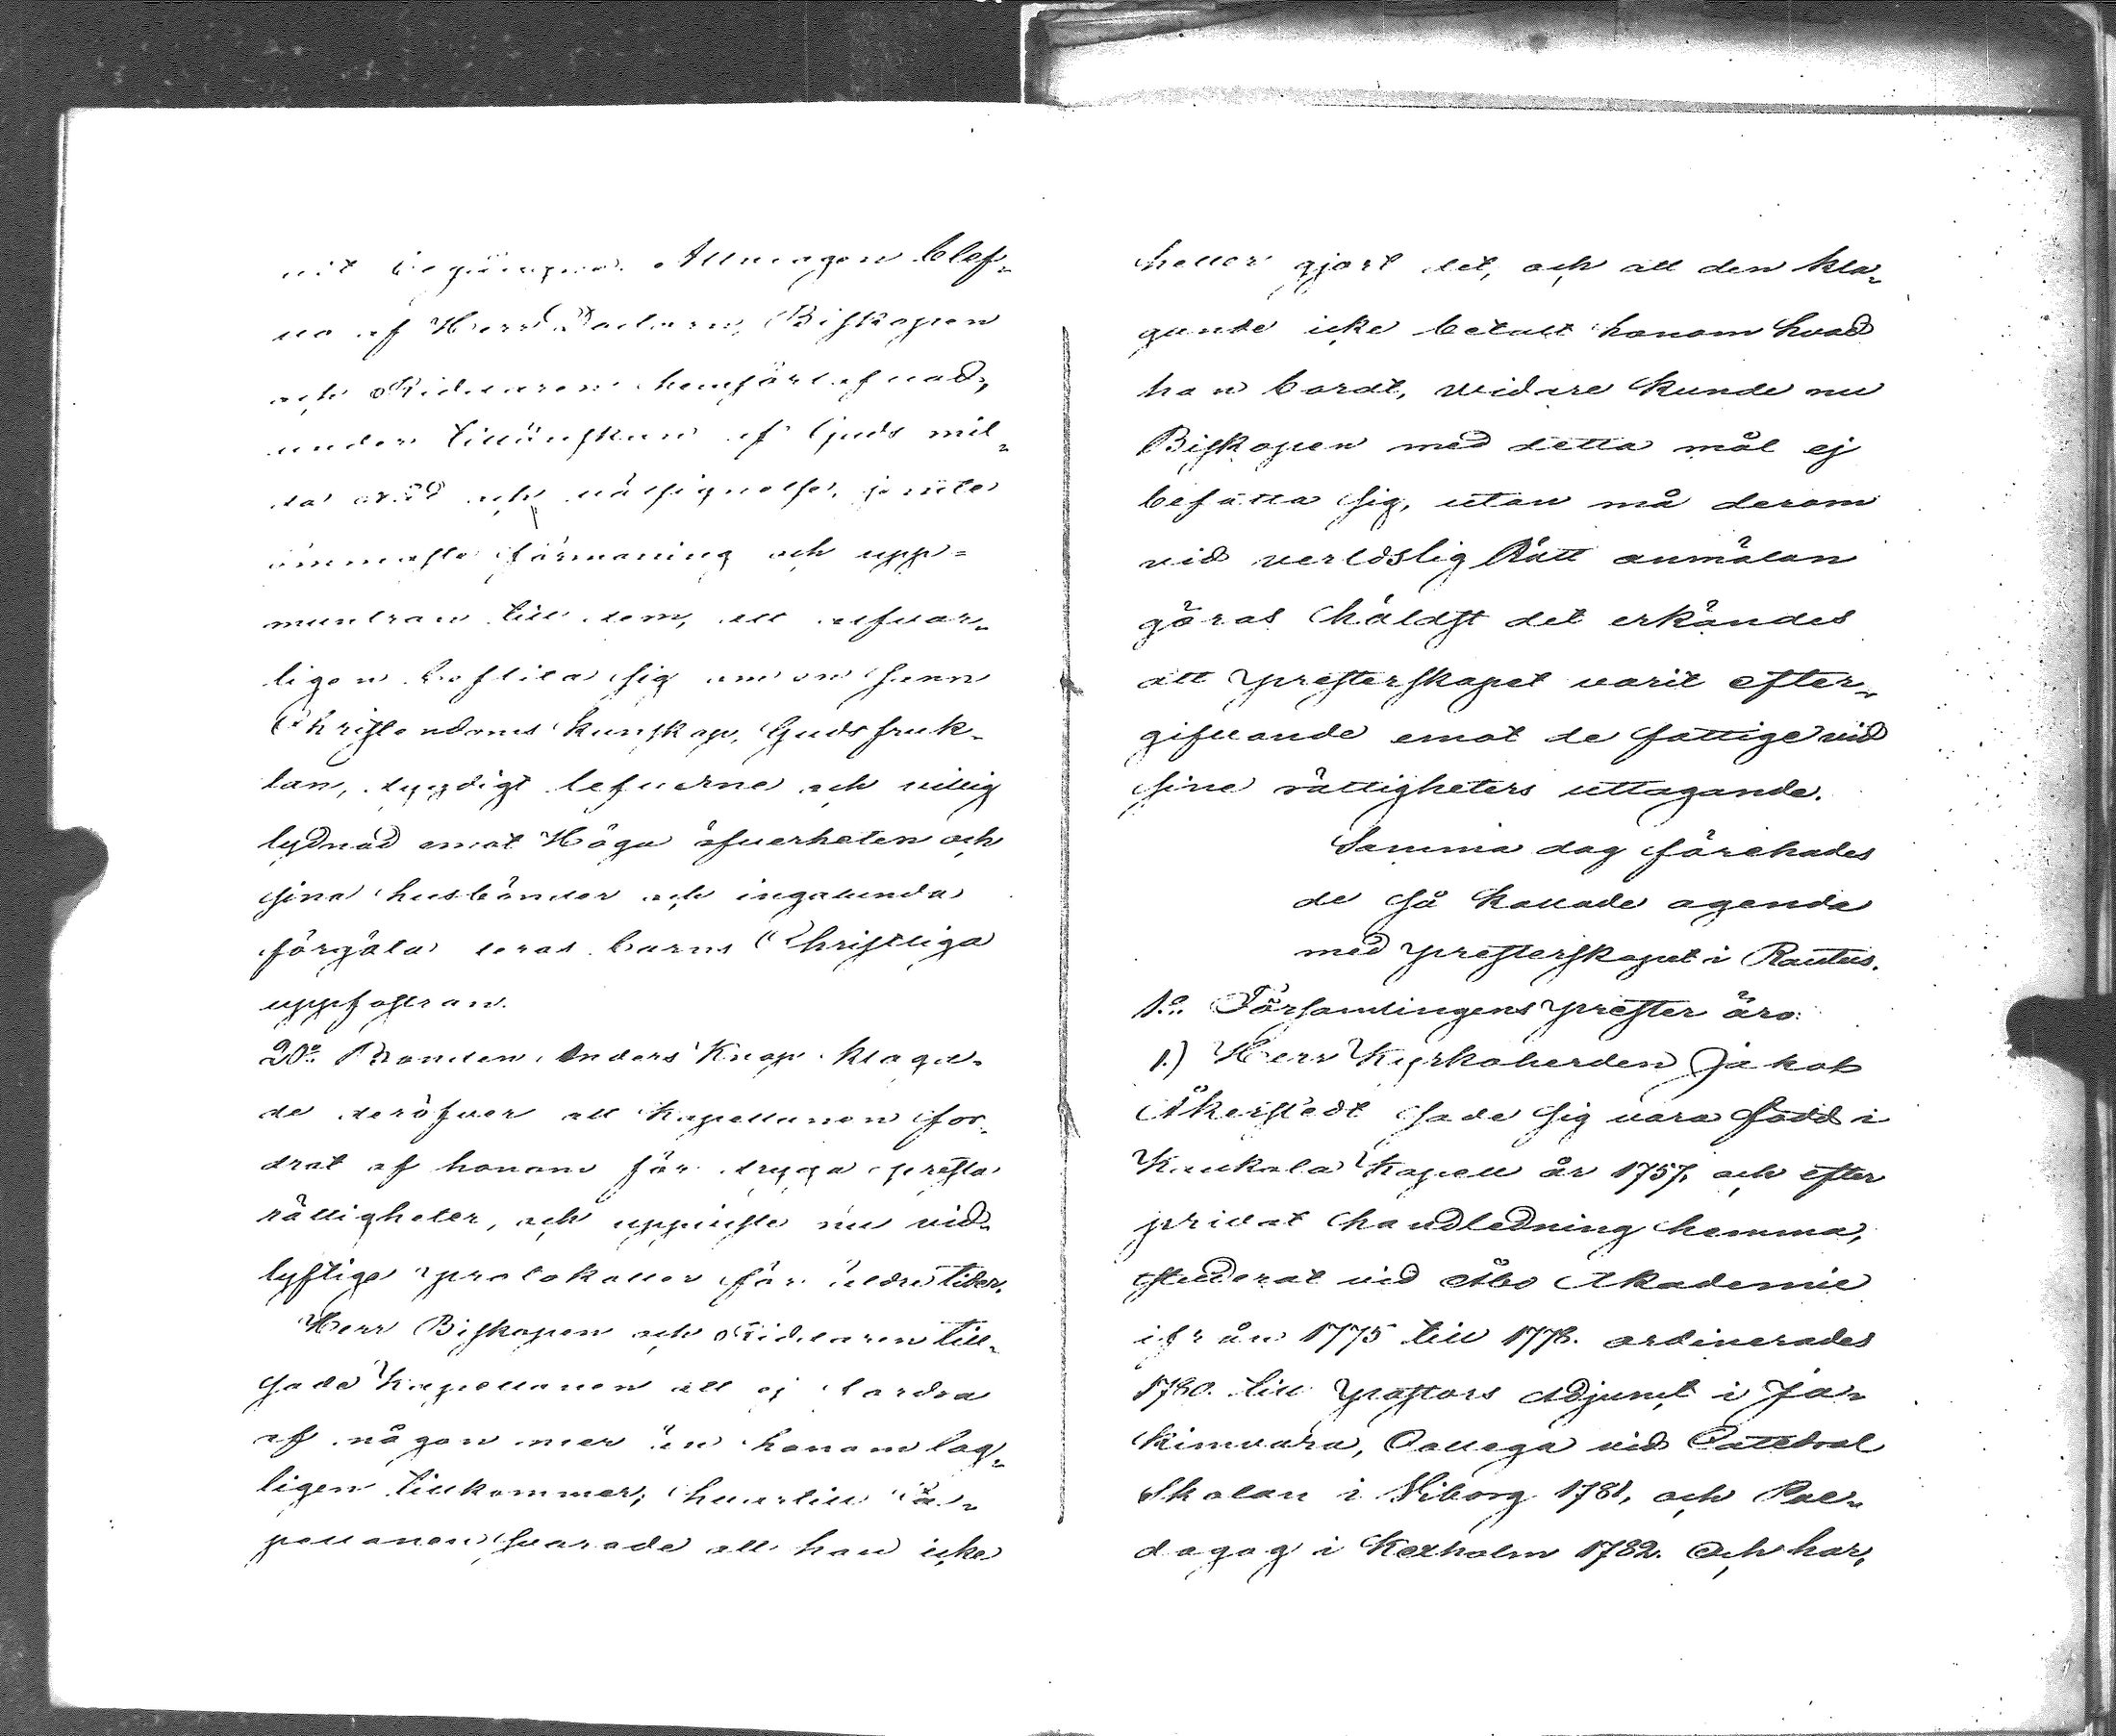 Allmogen blef-
va af Herr Doctorn, Biskopen
och Riddaren hemförlofvad,
under tillönskan af Guds mil-
da och välsignelse, jemte
ömmaste förmaning och upp-
muntran till dem, att alfvar-
ligen beflita sig om en sann
Christendoms kunskap, Guds fruk-
tan, dygdigt lefverne och villig
lydnad emot Höga öfverheten och
sina husbönder och ingalunda
förgäta deras barns Christliga
uppfostran.
20:o Bonden Anders Knap klaga-
de deröfver att Kapellanen for-
drat af honom för dryga presta
rättigheter, och uppviste nu vid-
lyftige protokoller för äldre tider.
Herr Biskopen och Riddaren till-
sade Kapellanen att ej fordra
af någon mer än honom lag-
ligen tillkommer; hvartill Ca-
pellanen svarade att han icke
heller gjort det, och att den kla-
gande icke betalt honom hvad
han bordt, vidare kunde nu
Biskopen med detta mål ej
befatta sig, utan må derom
vid verldslig Rätt anmälan
göras häldst det erkändes
att presterskapet varit efter-
gifvande emot de fattige vid
sine rättigheters uttagande.
Samma dag förehades
de så kallade agenda
med presterskapet i Rautus.
1:o Församlingens prester äro:
1.) Herr Kyrkoherden Jakob
Åkerstedt sade sig vara född i
Kaukola Kapell år 1757, och efter
privat handledning hemma,
studerat vid Åbo Akademie
ifrån 1775 till 1778. ordinerades
1780. till pastors Adjunct i Ja-
kimvara, Collega vid Catedral
Skolan i Viborg 1781, och Pæ-
dagog i Kexholm 1782. Och har,